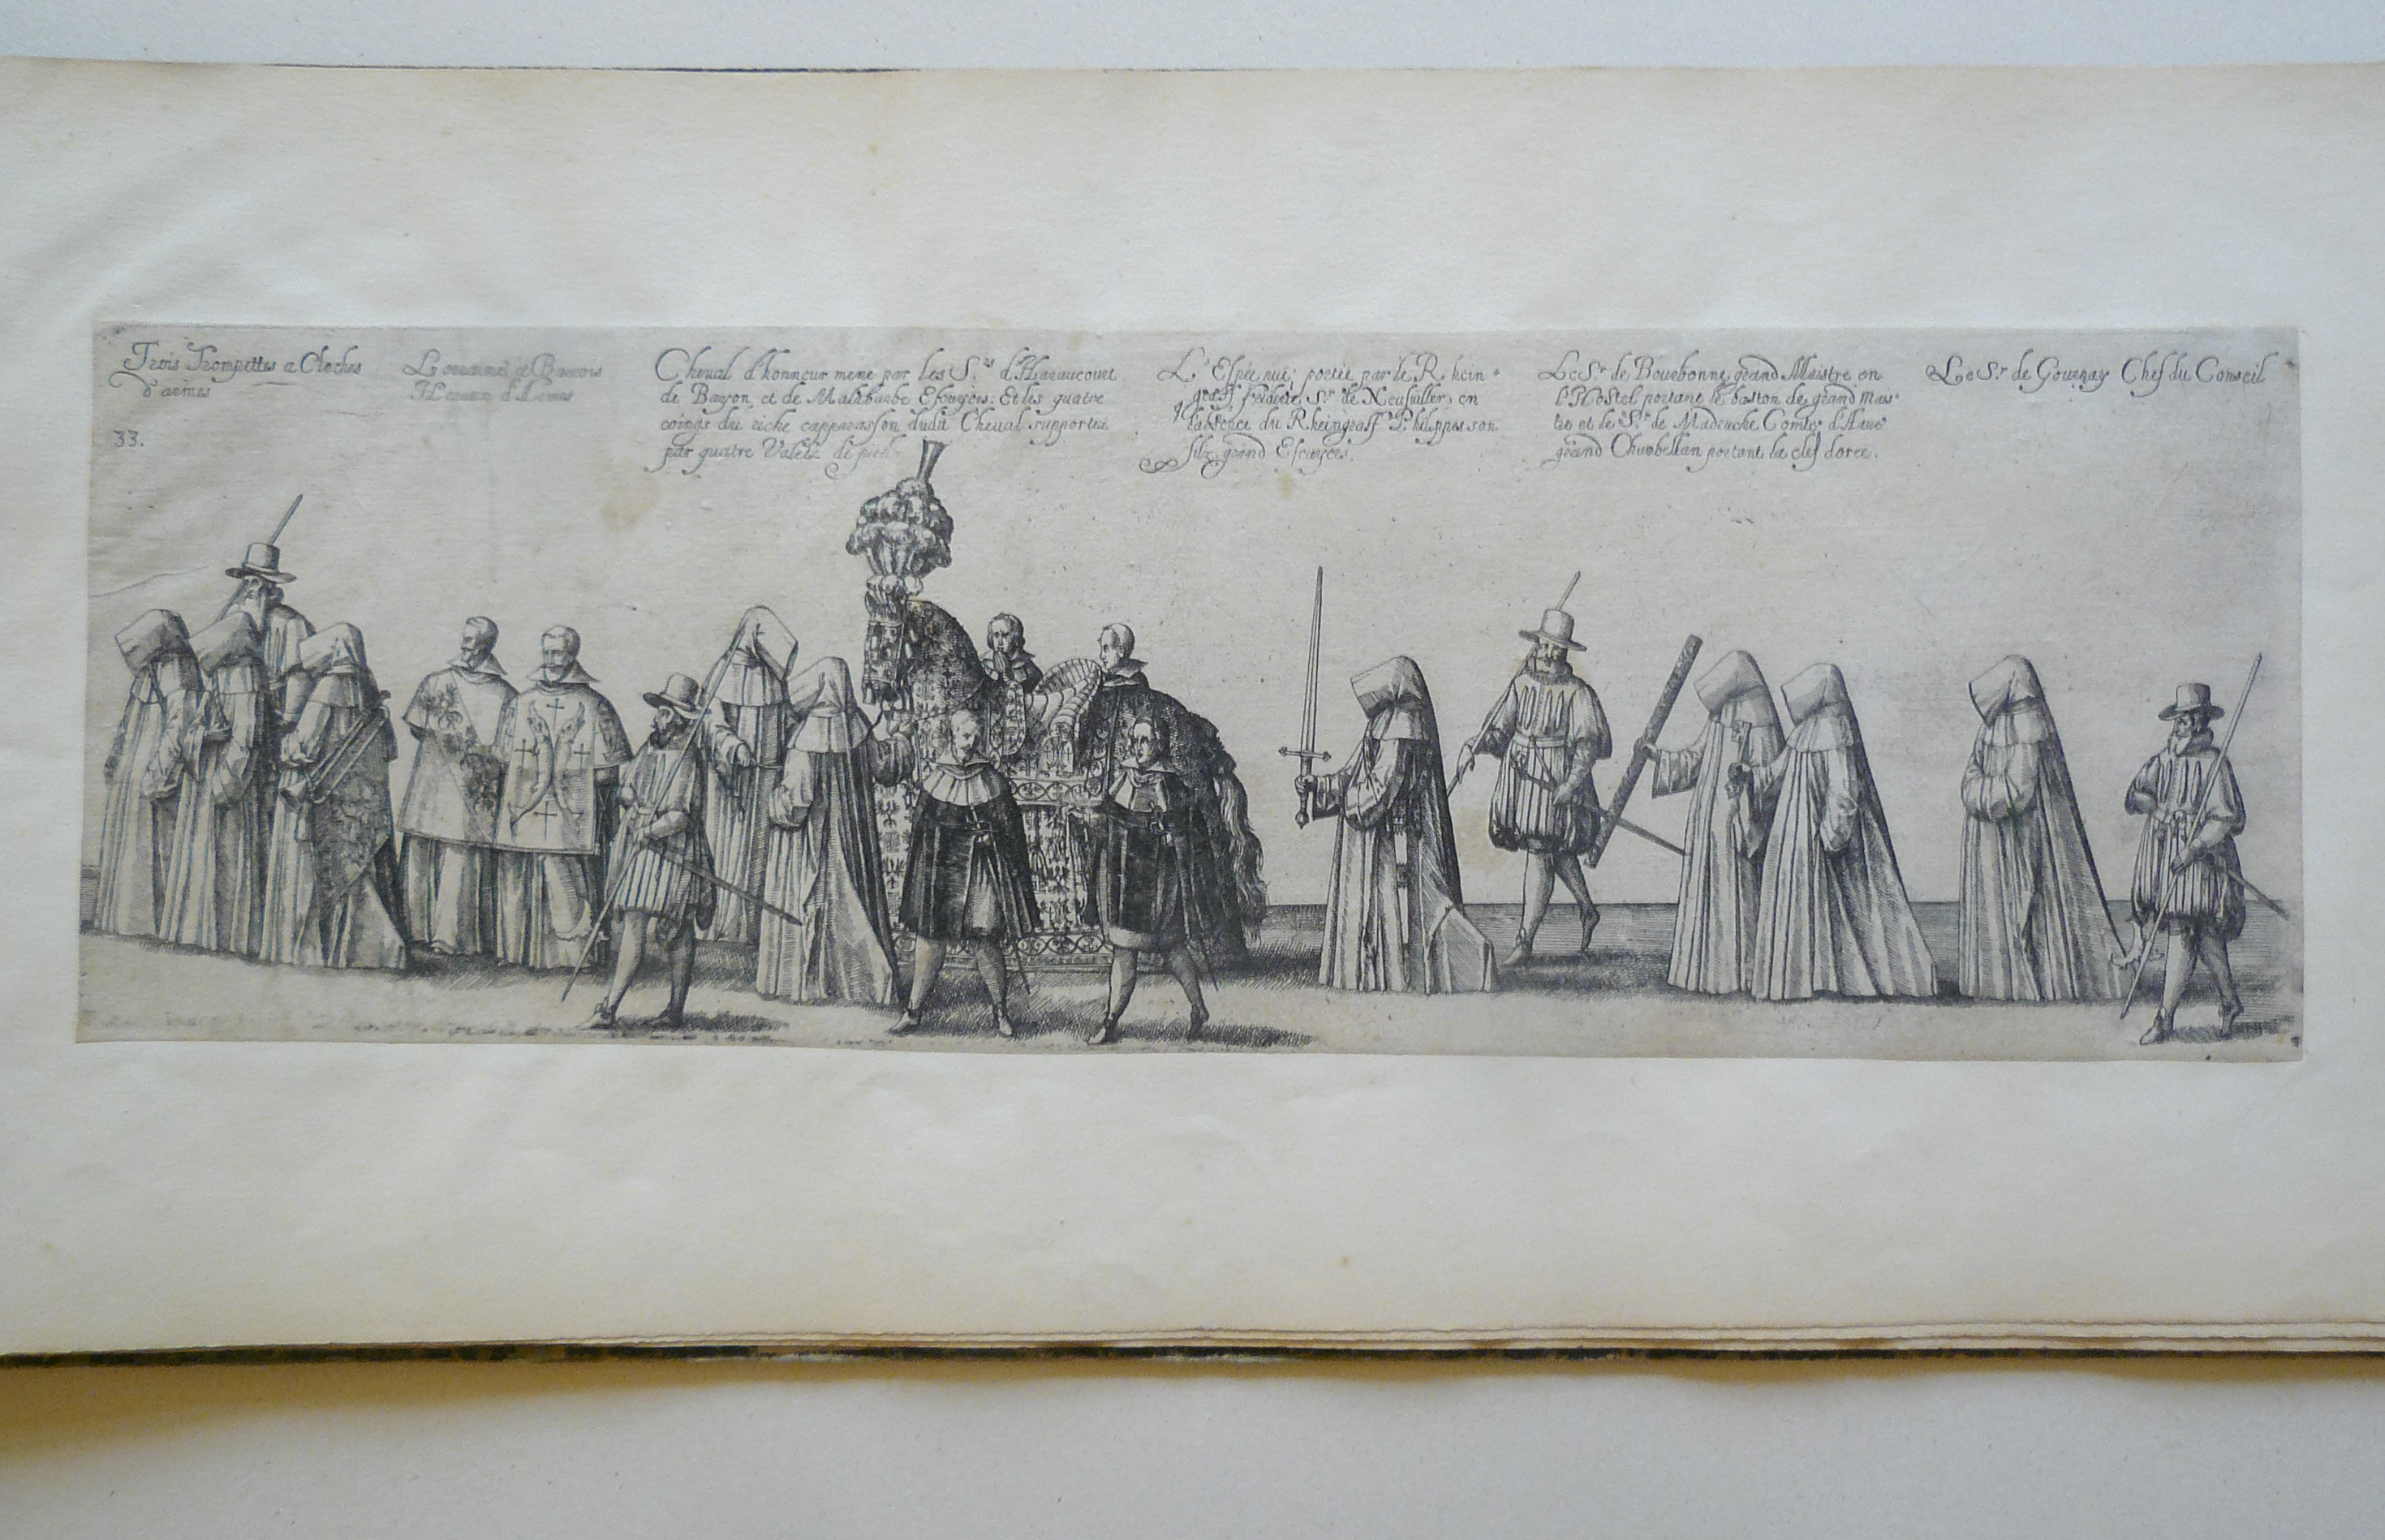 Trois Trompettes a Cloches
d'armes
33.
Lorraine et Barrois
Heraux d'Armes
Cheual d'honneur mene par les S.rs d'Haraucourt
de Bayon et de Malaburbe Escuyers: Et les quatre
coings du riche capparasson dudit Cheual supportez
par quatre Valetz de pied
L'Espée nuë; portée par le Rhein=
graff S.r de Neufuiller, en
l'absence du Rheingraff Philippes son
filz, grand Escuyer.
Le S.r de Bourbonne, grand Maistre en
l'Hostel portant le baston de grand Mais=
tre et le S.r de Marcuche Comte d'Haue
grand Chambellan portant la clef doree.
Le S.r de Gournay Chef du Conseil